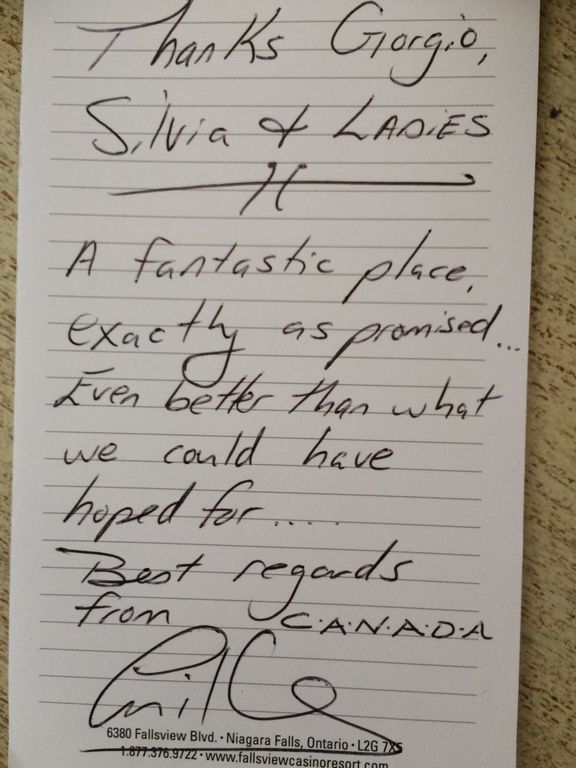 Thanks Giorgio,
Silvia & LADIES
A fantastic place,
exactly as promised...
Even better than what
we could have
hoped for.....
Best regards
from C.A.N.A.D.A
6380 Fallsview Blvd. · Niagara Falls, Ontario · L2G 7X5
1.877.376.9722 · www.fallsviewcasinoresort.com